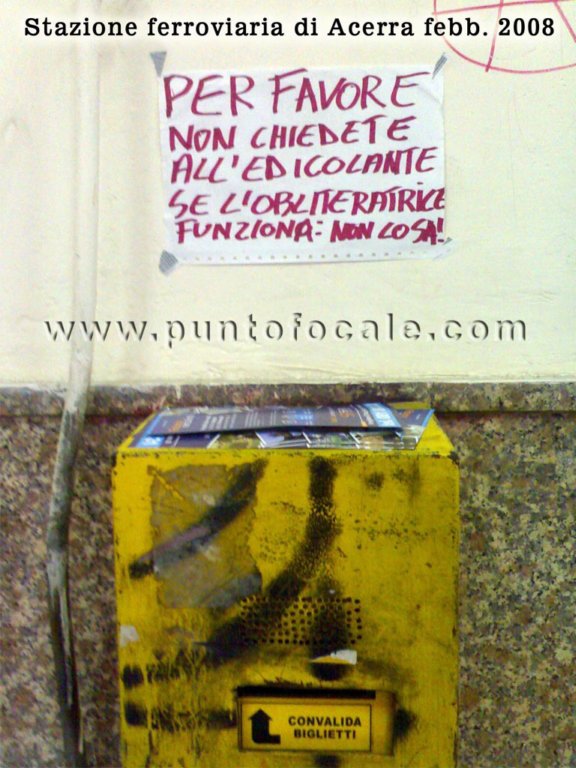 Stazione ferroviaria di Acerra febb. 2008
PER FAVORE
NON CHIEDETE
ALL'EDICOLANTE
SE L'OBLITERATRICE
FUNZIONA: NON LO SA!
www.puntofocale.com
CONVALIDA
BIGLIETTI